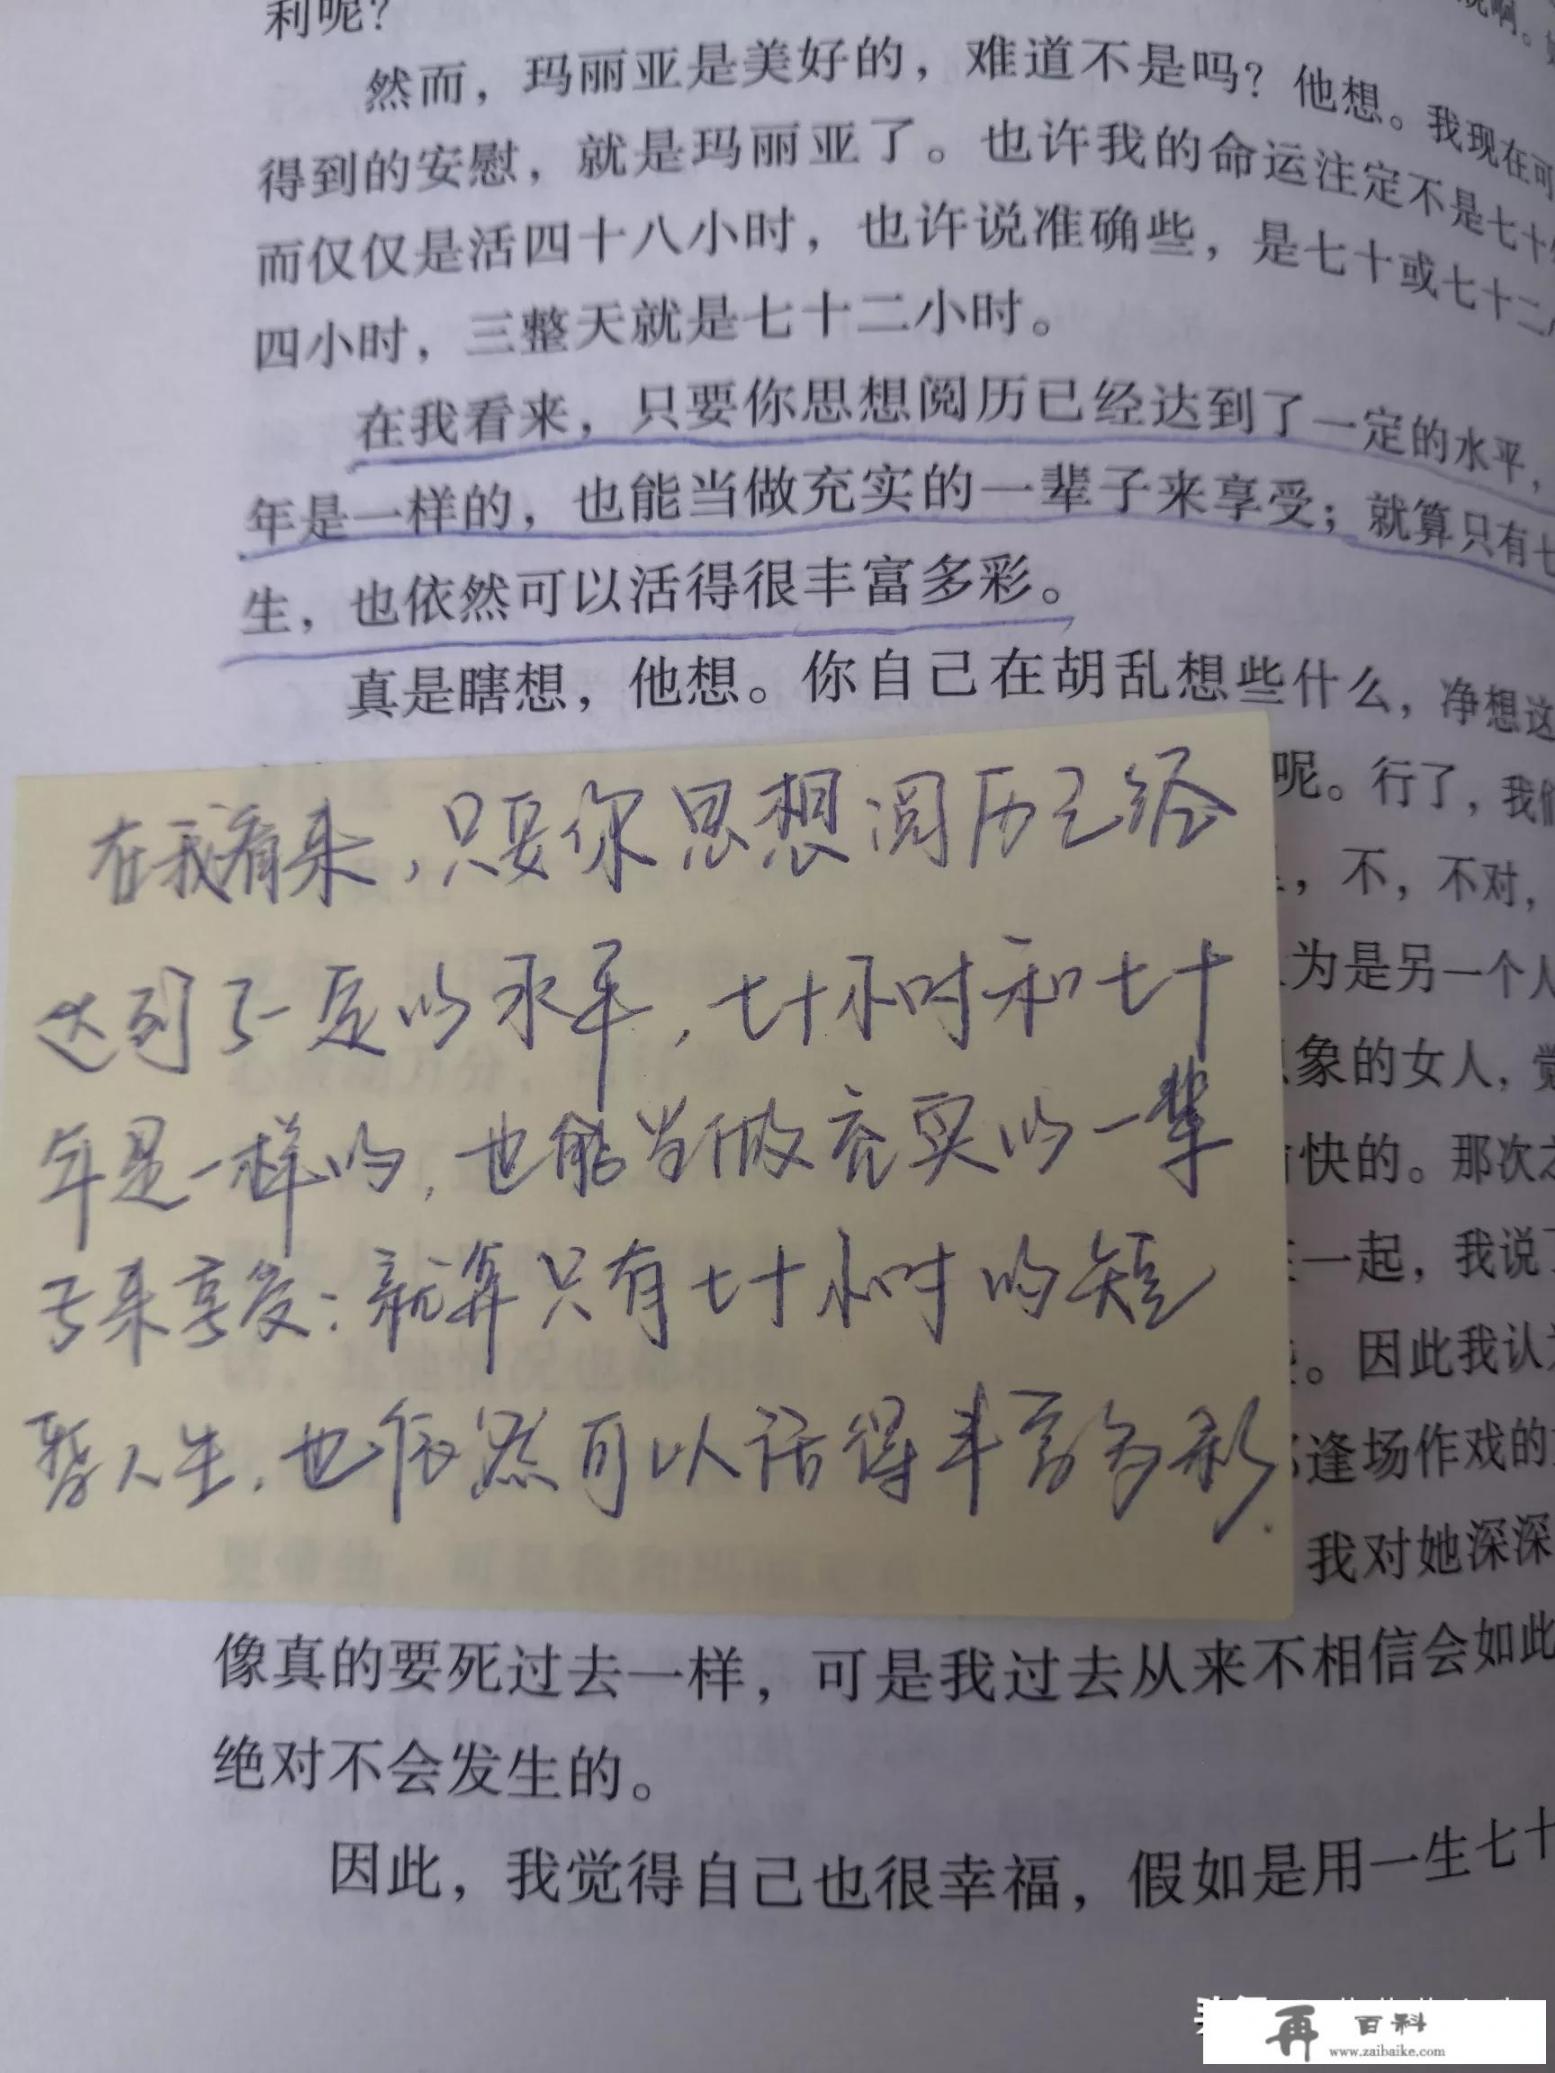 利呢？
然而，玛丽亚是美好的，难道不是吗？他想。我现在可
得到的安慰，就是玛丽亚了。也许我的命运注定不是七十
而仅仅是活四十八小时，也许说准确些，是七十或七十二
四小时，三整天就是七十二小时。
在我看来，只要你思想阅历已经达到了一定的水平，
年是一样的，也能当做充实的一辈子来享受；就算只有七
生，也依然可以活得很丰富多彩。
真是瞎想，他想。你自己在胡乱想些什么，净想这
呢。行了，我们
，不，不对，
为是另一个人
象的女人，觉
快的。那次
一起，我说了
。因此我认为
逢场作戏的
我对她深深
在我看来，只要你思想阅历已经
达到了一定的水平，七十小时和七十
年是一样的，也能当做充实的一辈
子来享受：就算只有七十小时的短
暂人生，也依然可以活得丰富多彩.
像真的要死过去一样，可是我过去从来不相信会如此
绝对不会发生的。
因此，我觉得自己也很幸福，假如是用一生七十
再百科
www.zaibaike.com